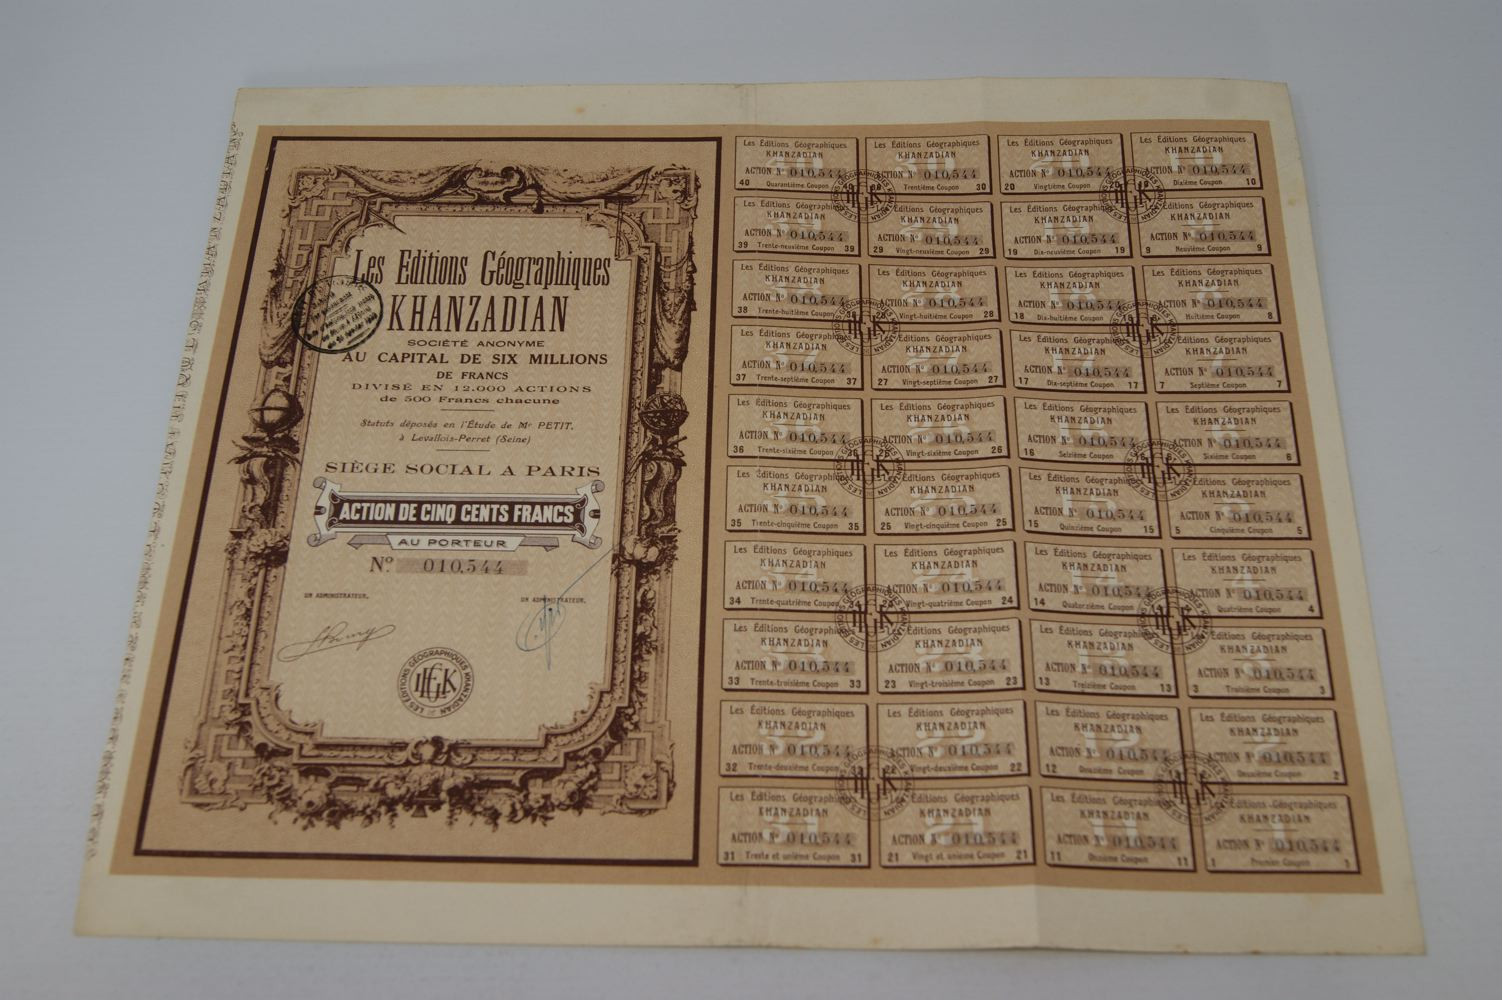 Les Editions Géographiques
KHANZADIAN
SOCIÉTÉ ANONYME
AU CAPITAL DE SIX MILLIONS
DE FRANCS
DIVISÉ EN 12.000 ACTIONS
de 500 Francs chacune
Statuts déposés en l'Étude de Me PETIT,
à Levallois-Perret (Seine)
SIÈGE SOCIAL A PARIS
ACTION DE CINQ CENTS FRANCS
AU PORTEUR
No 010,544
UN ADMINISTRATEUR. UN ADMINISTRATEUR.
LES EDITIONS GÉOGRAPHIQUES KHANZADIAN
LEGK
Les Éditions Géographiques
KHANZADIAN
ACTION No 010,544
40 Quarantième Coupon 40
Les Éditions Géographiques
KHANZADIAN
ACTION No 010,544
Trentième Coupon 30
Les Éditions Géographiques
KHANZADIAN
ACTION No 010,544
20 Vingtième Coupon 20
Les Éditions Géographiques
KHANZADIAN
ACTION No 010,544
10 Dixième Coupon 10
Les Éditions Géographiques
KHANZADIAN
ACTION No 010,544
39 Trente-neuvième Coupon 39
Les Éditions Géographiques
KHANZADIAN
ACTION No 010,544
29 Vingt-neuvième Coupon 29
Les Éditions Géographiques
KHANZADIAN
ACTION No 010,544
19 Dix-neuvième Coupon 19
Les Éditions Géographiques
KHANZADIAN
ACTION No 010,544
9 Neuvième Coupon 9
Les Éditions Géographiques
KHANZADIAN
ACTION No 010,544
38 Trente-huitième Coupon
Les Éditions Géographiques
KHANZADIAN
ACTION No 010,544
28 Vingt-huitième Coupon 28
Les Éditions Géographiques
KHANZADIAN
ACTION No 010,544
18 Dix-huitième Coupon 18
Les Éditions Géographiques
KHANZADIAN
ACTION No 010,544
Huitième Coupon 8
Les Éditions Géographiques
KHANZADIAN
ACTION No 010,544
37 Trente-septième Coupon 37
Les Éditions Géographiques
KHANZADIAN
ACTION No 010,544
27 Vingt-septième Coupon 27
Les Éditions Géographiques
KHANZADIAN
ACTION No 010,544
17 Dix-septième Coupon 17
Les Éditions Géographiques
KHANZADIAN
ACTION No 010,544
7 Septième Coupon 7
Les Éditions Géographiques
KHANZADIAN
ACTION No 010,544
36 Trente-sixième Coupon 36
Les Éditions Géographiques
KHANZADIAN
ACTION No 010,544
26 Vingt-sixième Coupon 26
Les Éditions Géographiques
KHANZADIAN
ACTION No 010,544
16 Seizième Coupon 16
Les Éditions Géographiques
KHANZADIAN
ACTION No 010,544
6 Sixième Coupon 6
Les Éditions Géographiques
KHANZADIAN
ACTION No 010,544
35 Trente-cinquième Coupon 35
Les Éditions Géographiques
KHANZADIAN
ACTION No 010,544
25 Vingt-cinquième Coupon 25
Les Éditions Géographiques
KHANZADIAN
ACTION No 010,544
15 Quinzième Coupon 15
Les Éditions Géographiques
KHANZADIAN
ACTION No 010,544
5 Cinquième Coupon 5
Les Éditions Géographiques
KHANZADIAN
ACTION No 010,544
34 Trente-quatrième Coupon 34
Les Éditions Géographiques
KHANZADIAN
ACTION No 010,544
24 Vingt-quatrième Coupon 24
Les Éditions Géographiques
KHANZADIAN
ACTION No 010,544
14 Quatorzième Coupon
Les Éditions Géographiques
KHANZADIAN
ACTION No 010,544
Quatrième Coupon 4
Les Éditions Géographiques
KHANZADIAN
ACTION No 010,544
33 Trente-troisième Coupon 33
Les Éditions Géographiques
KHANZADIAN
ACTION No 010,544
23 Vingt-troisième Coupon 23
Les Éditions Géographiques
KHANZADIAN
ACTION No 010,544
13 Treizième Coupon 13
Les Éditions Géographiques
KHANZADIAN
ACTION No 010,544
3 Troisième Coupon 3
Les Éditions Géographiques
KHANZADIAN
ACTION No 010,544
32 Trente-deuxième Coupon 32
Les Éditions Géographiques
KHANZADIAN
ACTION No 010,544
22 Vingt-deuxième Coupon 22
Les Éditions Géographiques
KHANZADIAN
ACTION No 010,544
12 Douzième Coupon
Les Éditions Géographiques
KHANZADIAN
ACTION No 010,544
Deuxième Coupon 2
Les Éditions Géographiques
KHANZADIAN
ACTION No 010,544
31 Trente et unième Coupon 31
Les Éditions Géographiques
KHANZADIAN
ACTION No 010,544
21 Vingt et unième Coupon 21
Les Éditions Géographiques
KHANZADIAN
ACTION No 010,544
11 Onzième Coupon 11
Les Éditions Géographiques
KHANZADIAN
ACTION No 010,544
1 Premier Coupon 1